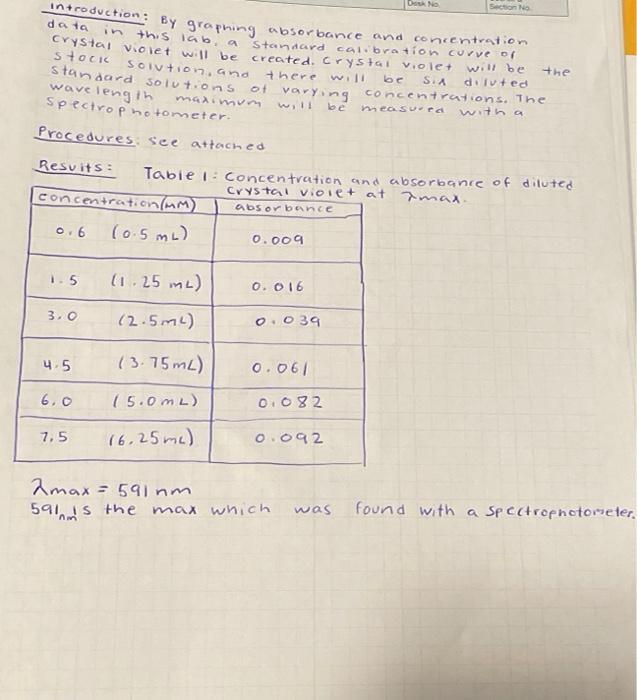 Desk No.
Section No.
Introduction: By graphing absorbance and concentration
data in this lab, a standard calibration curve of
crystal violet will be created. Crystal violet will be the
stock solution, and there will be six diluted
standard solutions of varying concentrations. The
wavelength maximum will be measured with a
spectrophotometer.
Procedures: see attached
Results: Table 1: Concentration and absorbance of diluted
crystal violet at λmax.
concentration(mM) absorbance
0.6 (0.5 mL) 0.009
1.5 (1.25 mL) 0.016
3.0 (2.5mL) 0.039
4.5 (3.75mL) 0.061
6.0 (5.0mL) 0.082
7.5 (6.25mL) 0.092
λmax = 591 nm
591nm is the max which was found with a spectrophotometer.